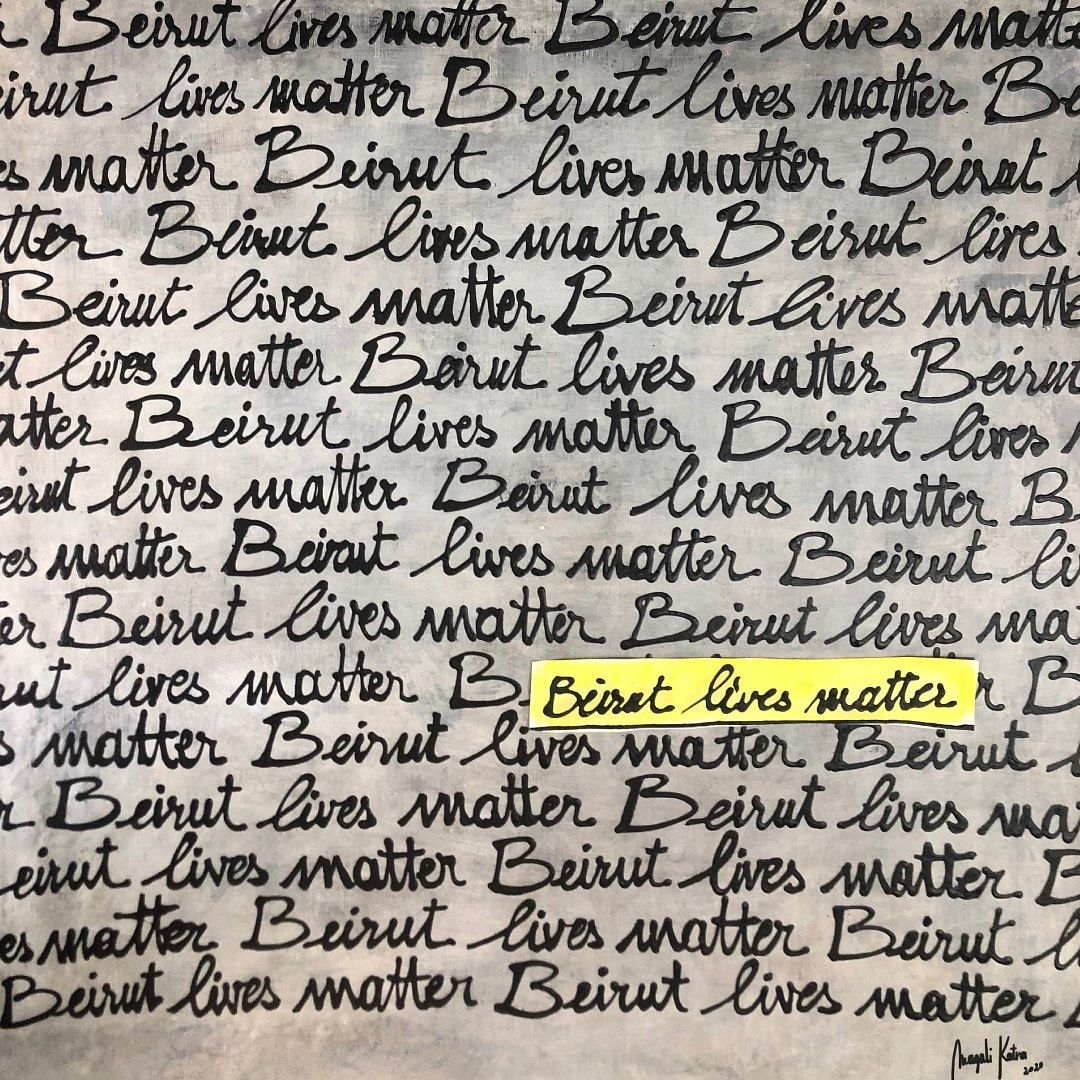 r Beirut lives matter Beirut lives matte
eirut lives matter Beirut lives matter Be
es matter Beirut lives matter Beirut l
tter Beirut lives matter Beirut lives
Beirut lives matter Beirut lives matte
t lives matter Beirut lives matter Beirut
atter Beirut lives matter Beirut lives m
eirut lives matter Beirut lives matter B
es matter Beirut lives matter Beirut li
er Beirut lives matter Beirut lives ma
rut lives matter B Beirut lives matter r B
s matter Beirut lives matter Beirut l
r Beirut lives matter Beirut lives ma
eirut lives matter Beirut lives matter B
es matter Beirut lives matter Beirut l
Beirut lives matter Beirut lives matter B
Magali Katra
2020